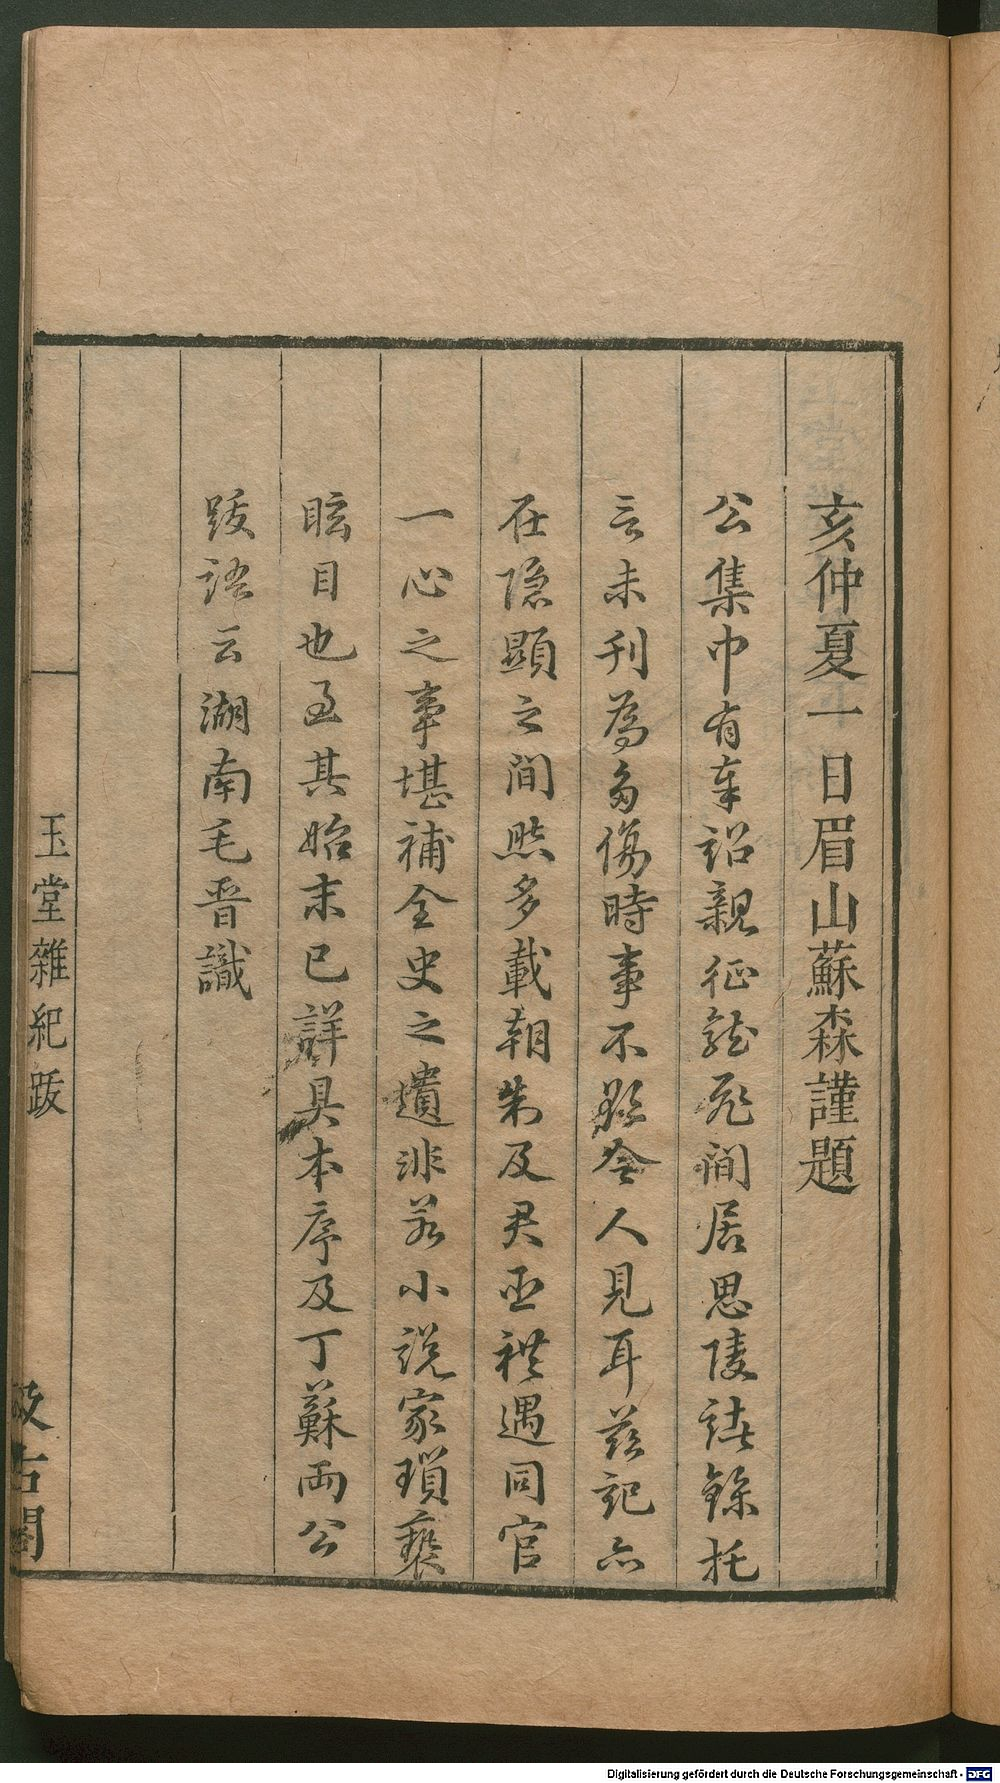 亥仲夏一日眉山蘇森謹題
公集中有奉詔親征龍飛間居思陵諸錄托
言未刊為多傷時事不欲令人見耳茲記亦
在隱顯之間然多載朝制及君臣禮遇同官
一心之事堪補全史之遺非若小說家瑣褻
眩目也至其始末已詳具本序及丁蘇兩公
跋語云湖南毛晉識
玉堂雜紀跋
汲古閣
Digitalisierung gefördert durch die Deutsche Forschungsgemeinschaft - DFG